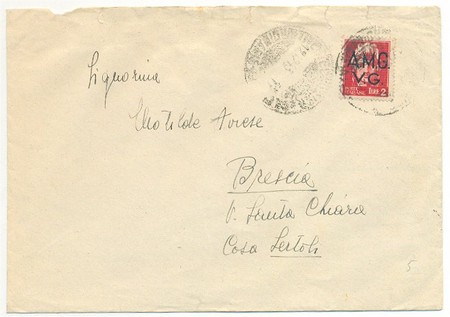 A.M.G.
V.G.
LIRE 2
Signorina
Clotilde
Brescia
V. Santa Chiara
Casa Sertoli
5